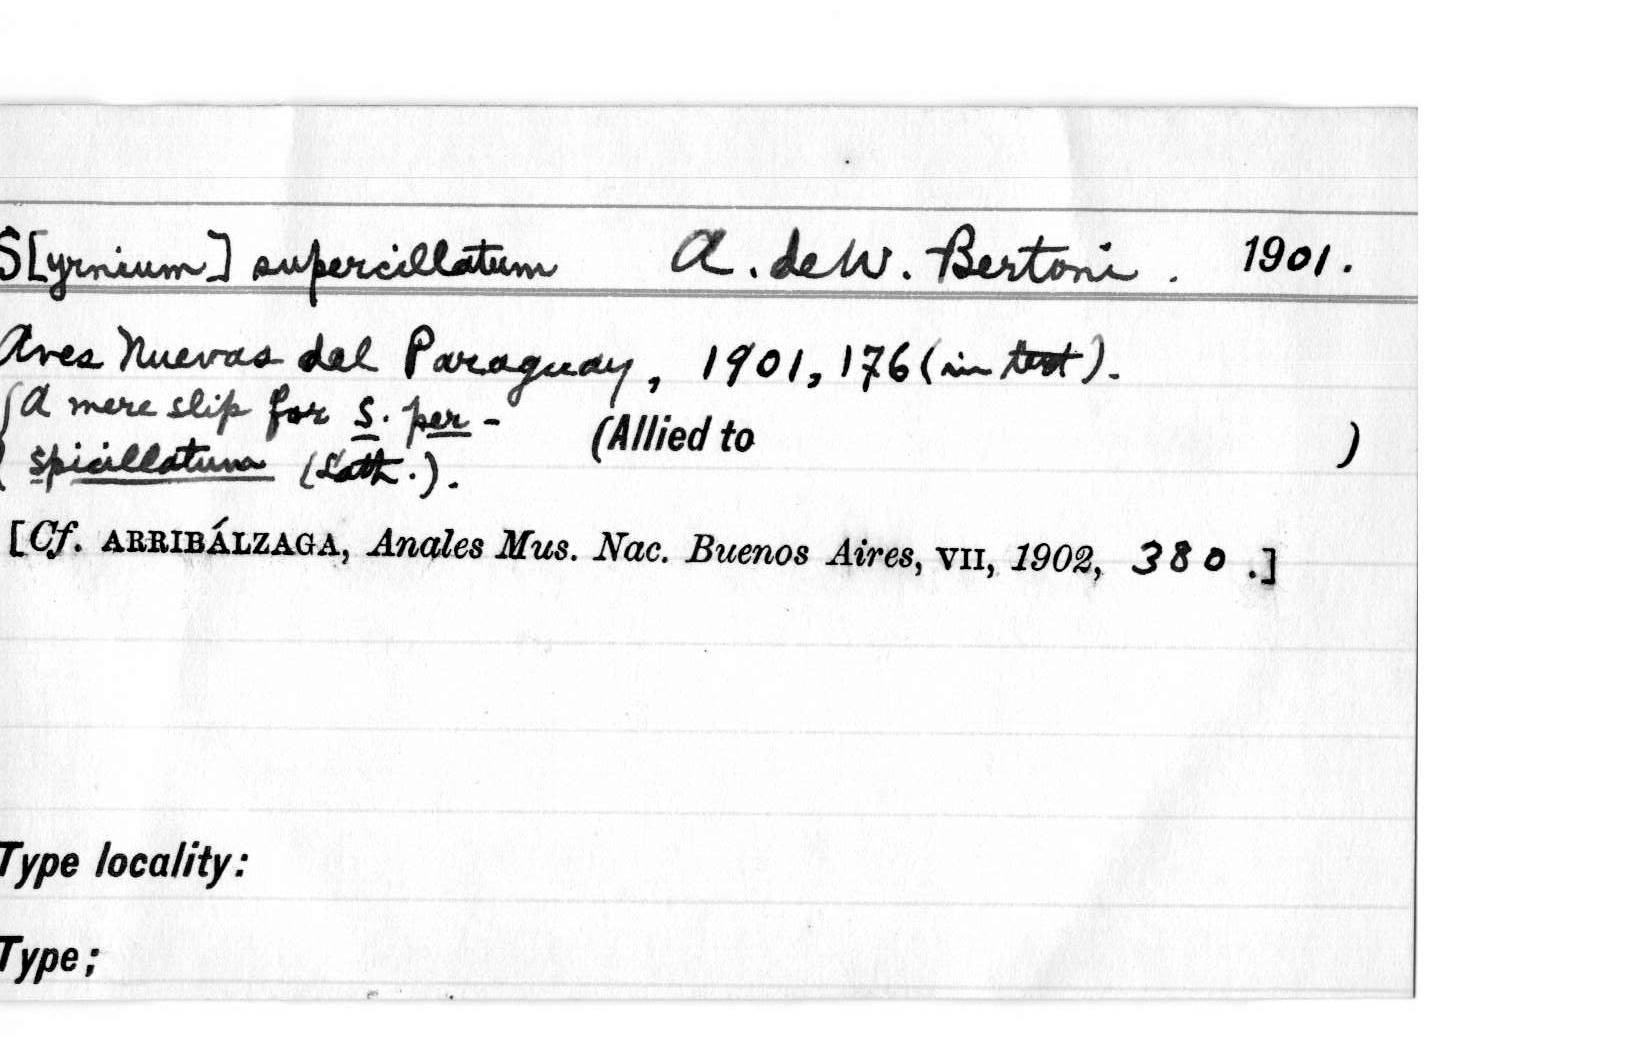 S[yrnium] supercillatum A. de W. Bertoni. 1901.
Aves Nuevas del Paraguay, 1901, 176 (in text).
(A mere slip for S. per-
spicillatum (Lath.).
(Allied to )
[Cf. ARRIBÁLZAGA, Anales Mus. Nac. Buenos Aires, VII, 1902, 380.]
Type locality:
Type;